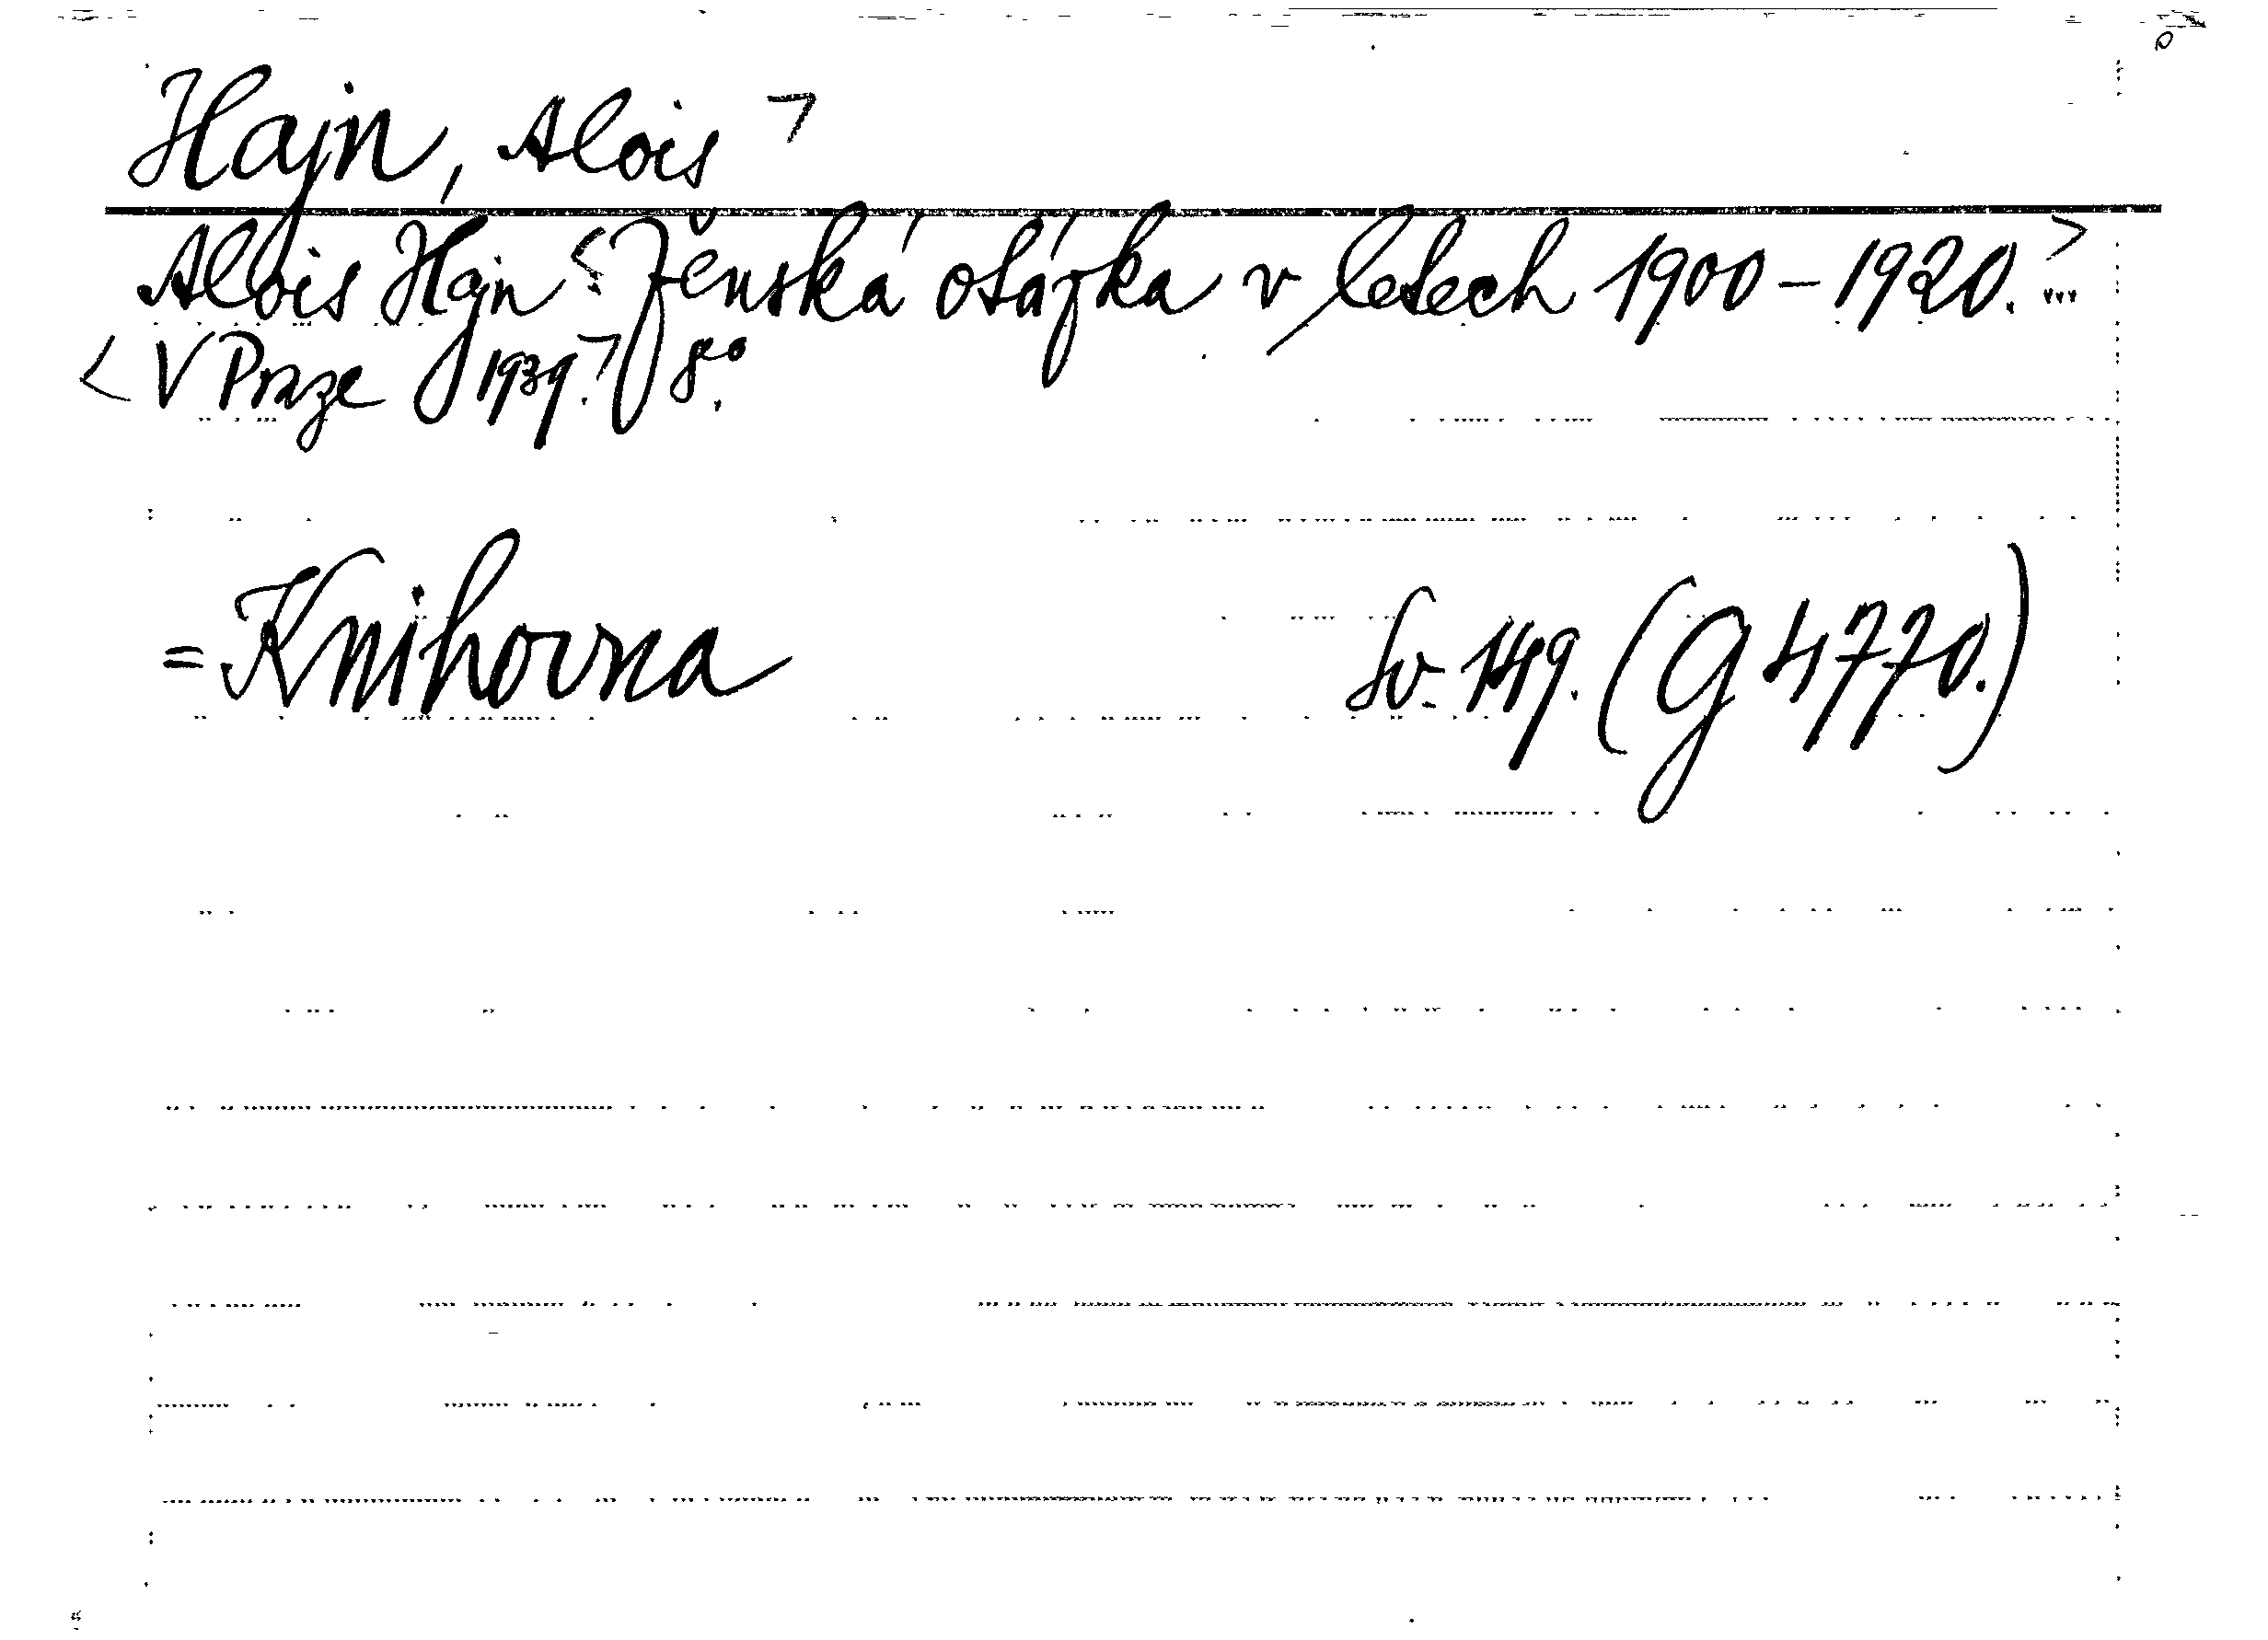 Hajn, Alois >
Alois Hajn < Ženská otázka v letech 1900-1920. > ...
< V Praze 1939. > 8°.
= Knihovna Sv. 149. (G 4770.)